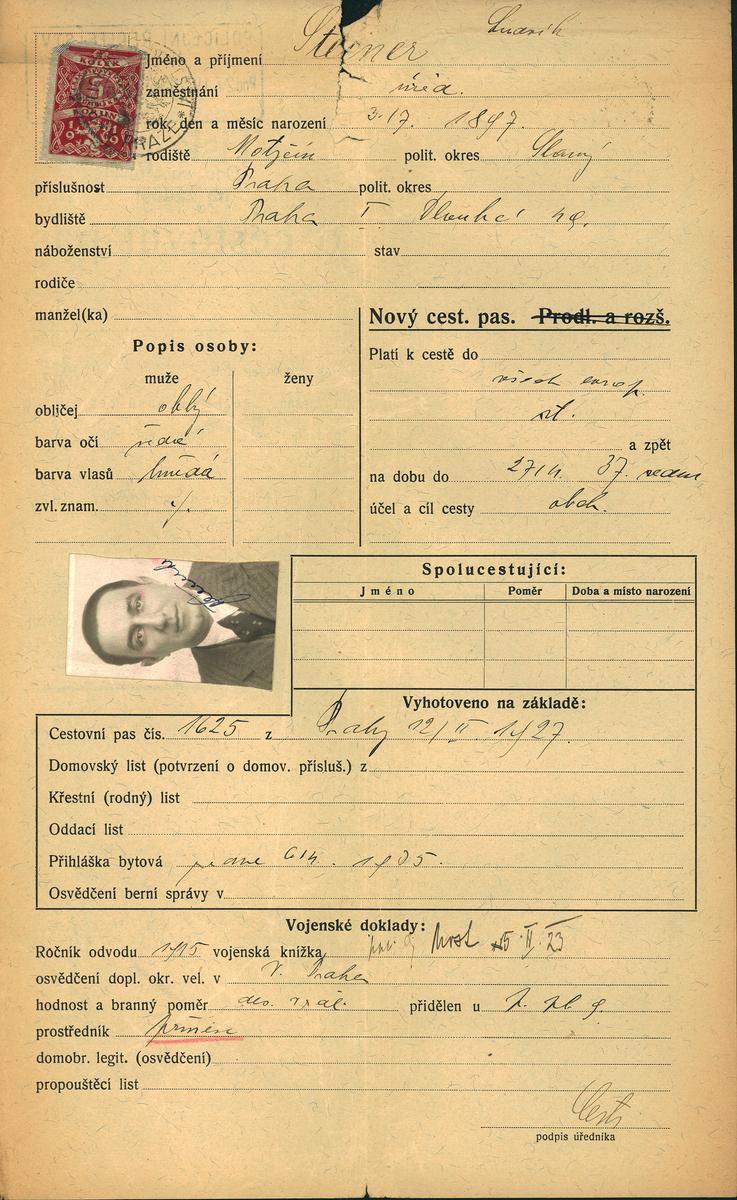 Ludvík
Jméno a příjmení Steiner
zaměstnání úřed.
rok, den a měsíc narození 3./7. 1897.
rodiště Motyčín polit. okres Slaný
příslušnost Praha polit. okres
bydliště Praha I Dlouhá
náboženství stav
rodiče
manžel(ka)
Nový cest. pas. Prodl. a rozš.
Popis osoby:
muže ženy
obličej oblý
barva očí šedé
barva vlasů hnědá
zvl. znam. ./.
Platí k cestě do
všech evrop.
st.
a zpět
na dobu do 27/4. 37.
účel a cíl cesty obch.
Spolucestující:
Jméno Poměr Doba a místo narození
Vyhotoveno na základě:
Cestovní pas čís. 1625 z Prahy 12/II 1927.
Domovský list (potvrzení o domov. přísluš.) z
Křestní (rodný) list
Oddací list
Přihláška bytová 6/4. 1935.
Osvědčení berní správy v
Vojenské doklady:
Ročník odvodu 1915 vojenská knížka Most 5. II. 23
osvědčení dopl. okr. vel. v V. Praha
hodnost a branný poměr des. zál. přidělen u p. pl 9
prostředník
domobr. legit. (osvědčení)
propouštěcí list
podpis úředníka